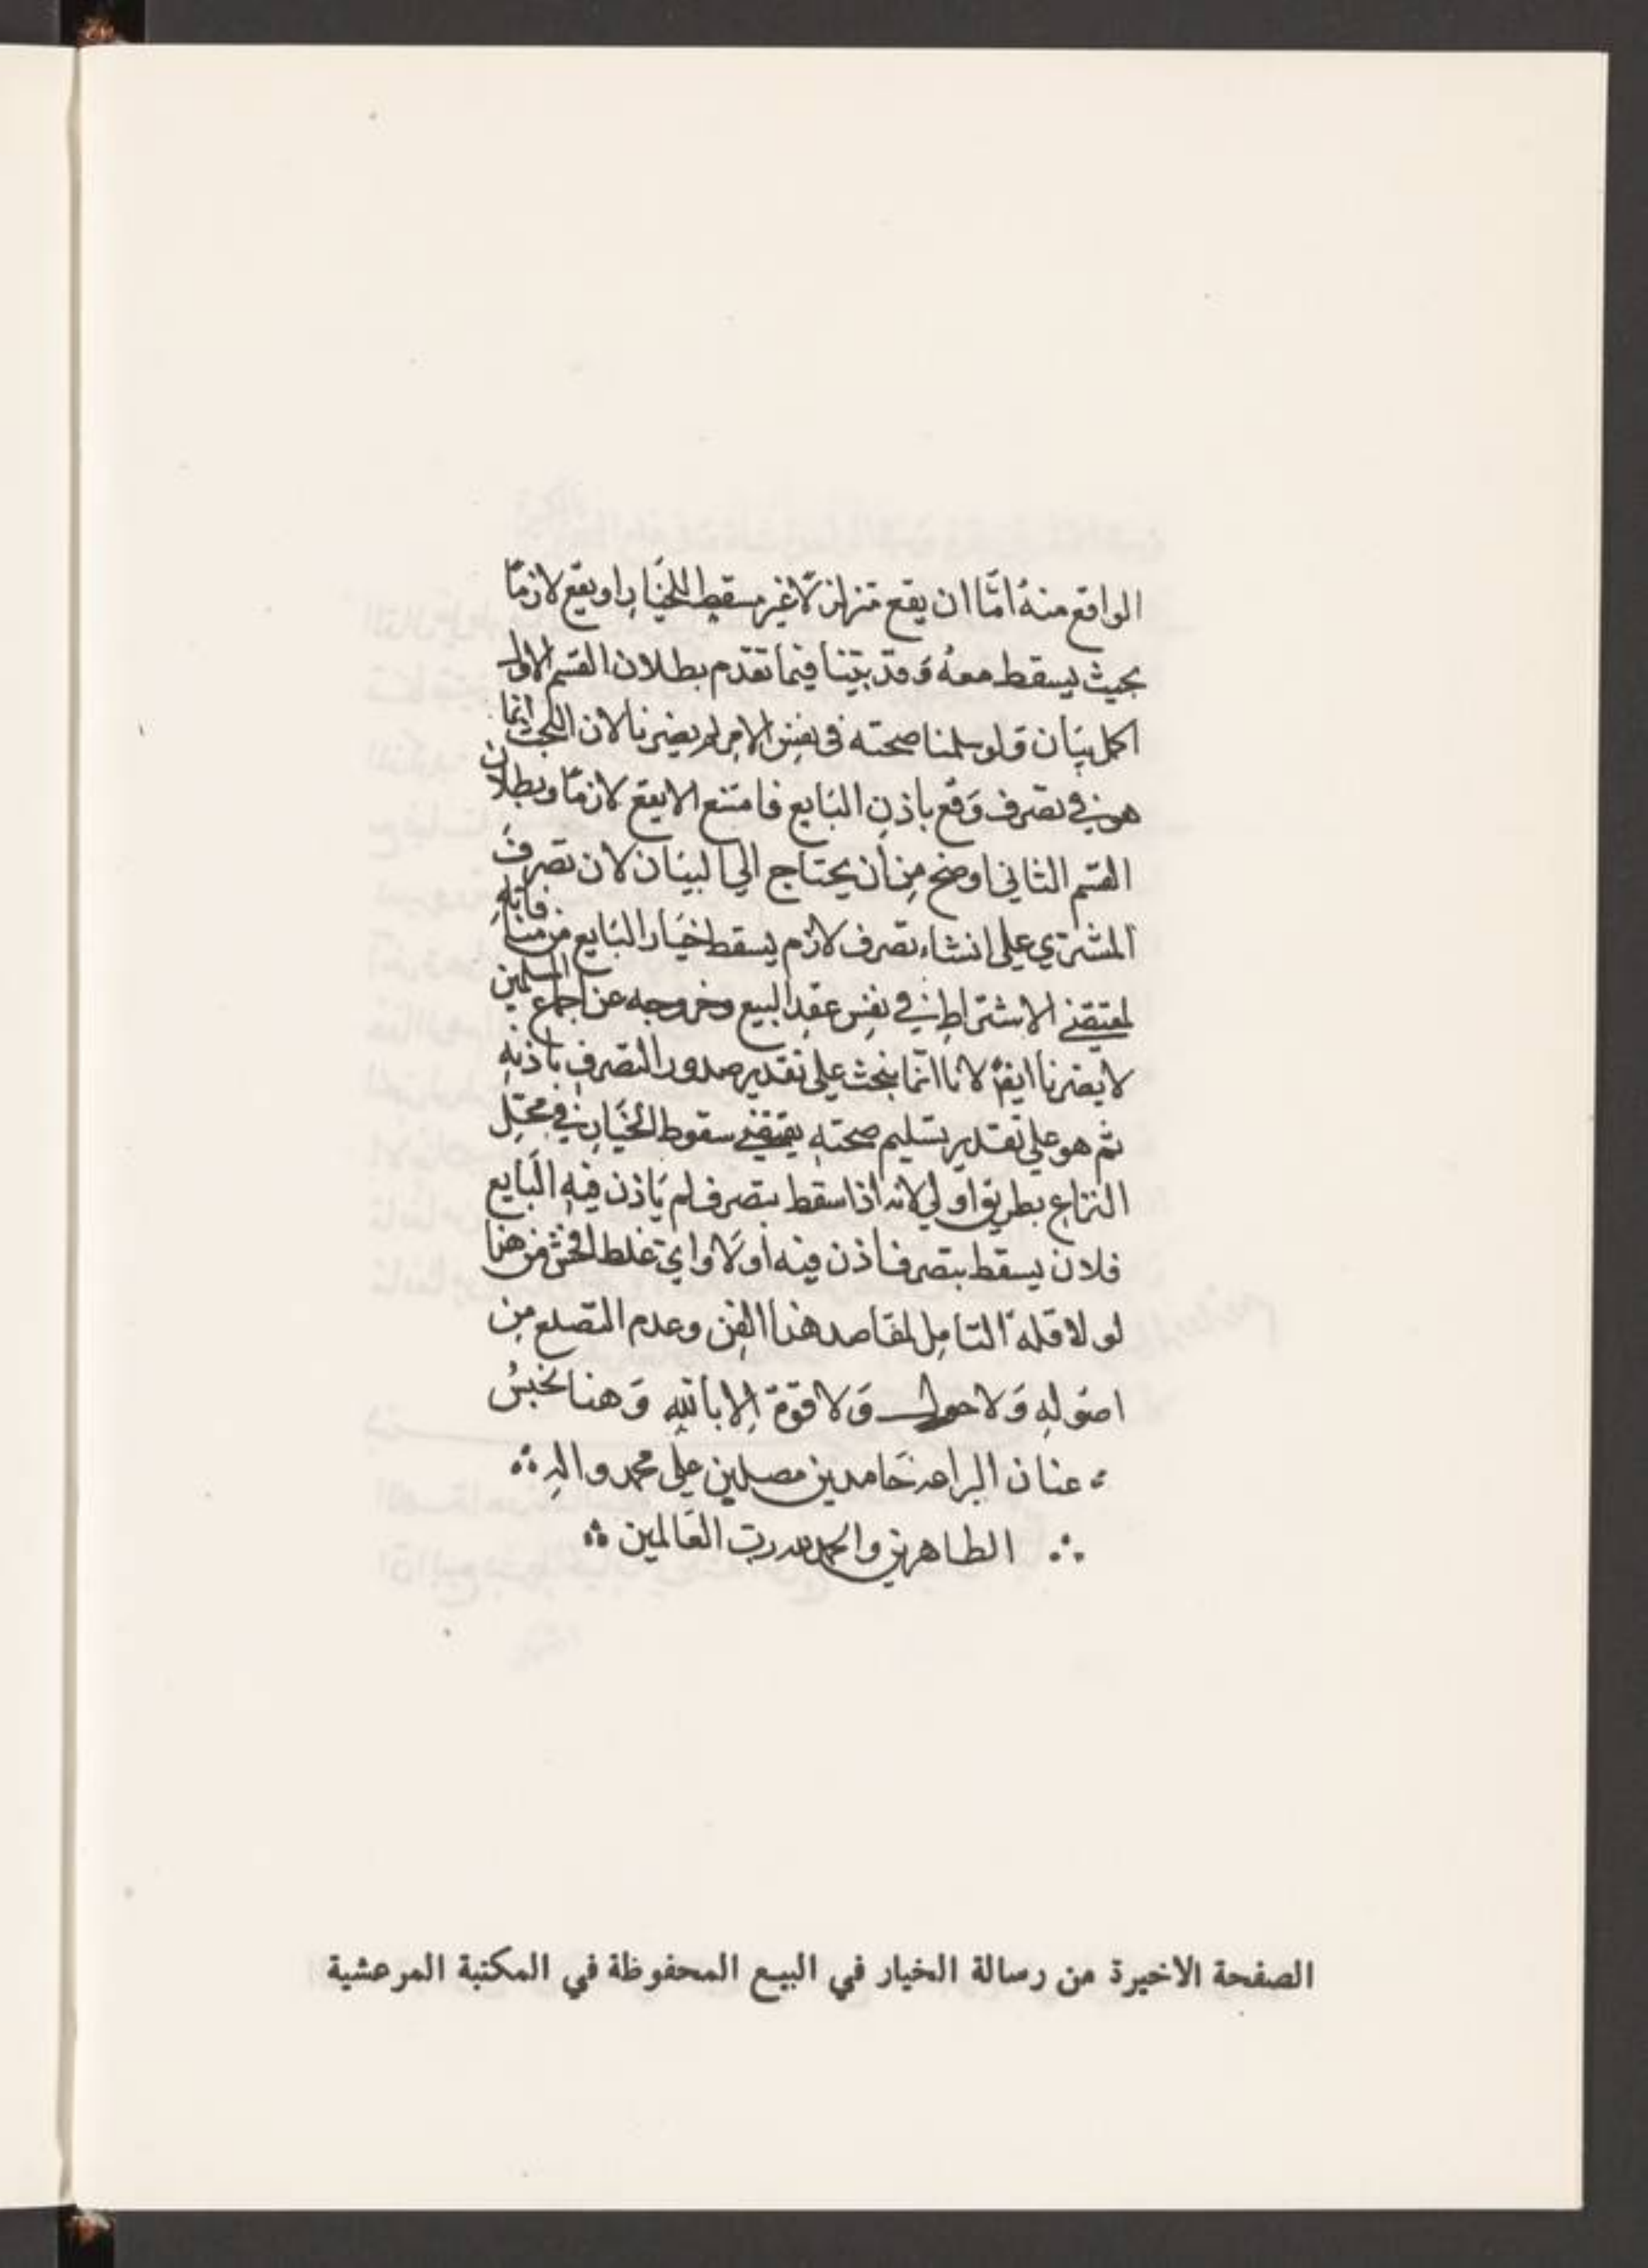 الواقع منهُ امّا ان يقع متزلزلًا غير مسقط للخيَار او يقع لازمًا
بحيث يسقط معهُ وَ قد بيّنا فيما تقدّم بطلان القسم الاول
اكمل بيَان فلو سلمنا صحته في نفس الامر لم يضرنا لان البحث انما
هو في تصرف وَقع باذن البَايع فامتنع الا يقع لازمًا وبطلان
القسم الثاني اوضح مِن ان يحتاج الي البيَان لان تصرف
المشتري علي انشاء تصرف لازم يسقط خيَار البَايع من منافاته
لمقتضي الاشتراط في نفس عقد البيع وخروجه عن اجماع المسلمين
لا يضرنا ايضًا لانا انّما نبحث علي تقدير صدور التصرف باذنه
ثم هو علي تقدير تسليم صحتهِ يقتضي سقوط الخيَار في محل
النزاع بطريق اولي لانه اذا سقط بتصرف لم يَاذن فيهِ البَايع
فلان يسقط بتصرف اذن فيه اولا واي غلط افحش من هنا
لو لا قلة التامل لمقاصد هذا الفن وعدم التضلع مِن
اصوله وَ لا حول وَ لا قوّة الا بالله وَ هنا نحبسُ
عنان البراعه حَامدين مصلين علي محمد واله
الطاهرين والحمد لله رب العَالمين
الصفحة الاخيرة من رسالة الخيار في البيع المحفوظة في المكتبة المرعشية